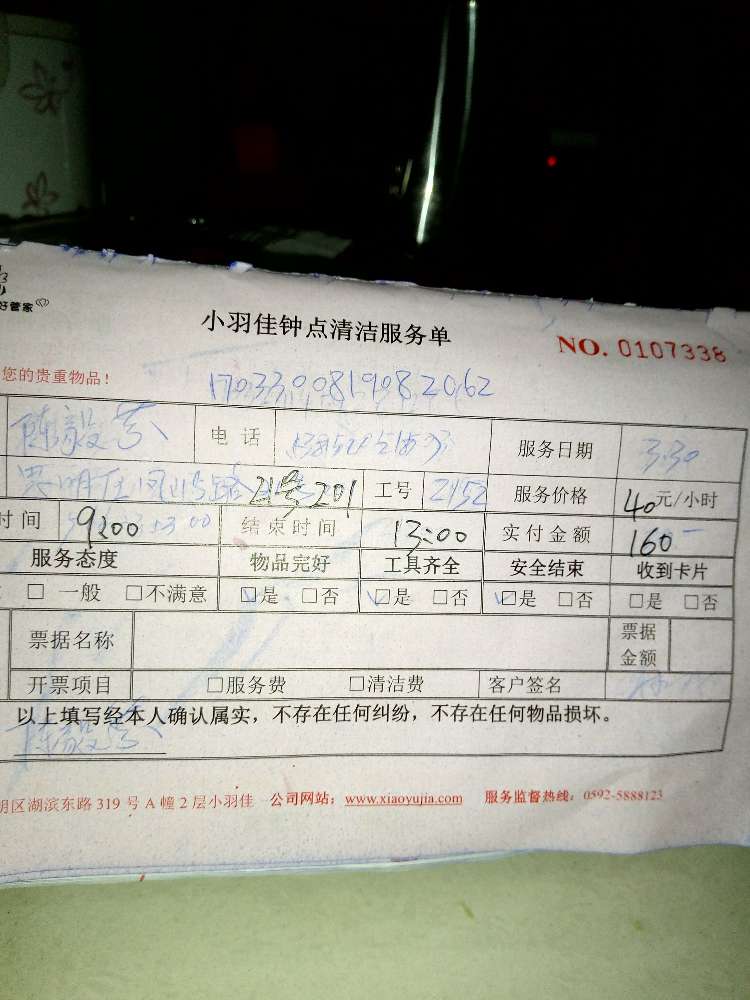 好管家
小羽佳钟点清洁服务单 NO. 0107338
您的贵重物品！
1703300819082062
陈毅 电话 服务日期 3.30
21号201 工号 2152 服务价格 40元/小时
时间 9:00 结束时间 13:00 实付金额 160
服务态度 物品完好 工具齐全 安全结束 收到卡片
□ 一般 □不满意 □是 □否 □是 □否 □是 □否 □是 □否
票据名称 票据金额
开票项目 □服务费 □清洁费 客户签名
以上填写经本人确认属实，不存在任何纠纷，不存在任何物品损坏。
陈毅
明区湖滨东路 319 号 A 幢 2 层小羽佳 公司网站：www.xiaoyujia.com 服务监督热线：0592-5888123